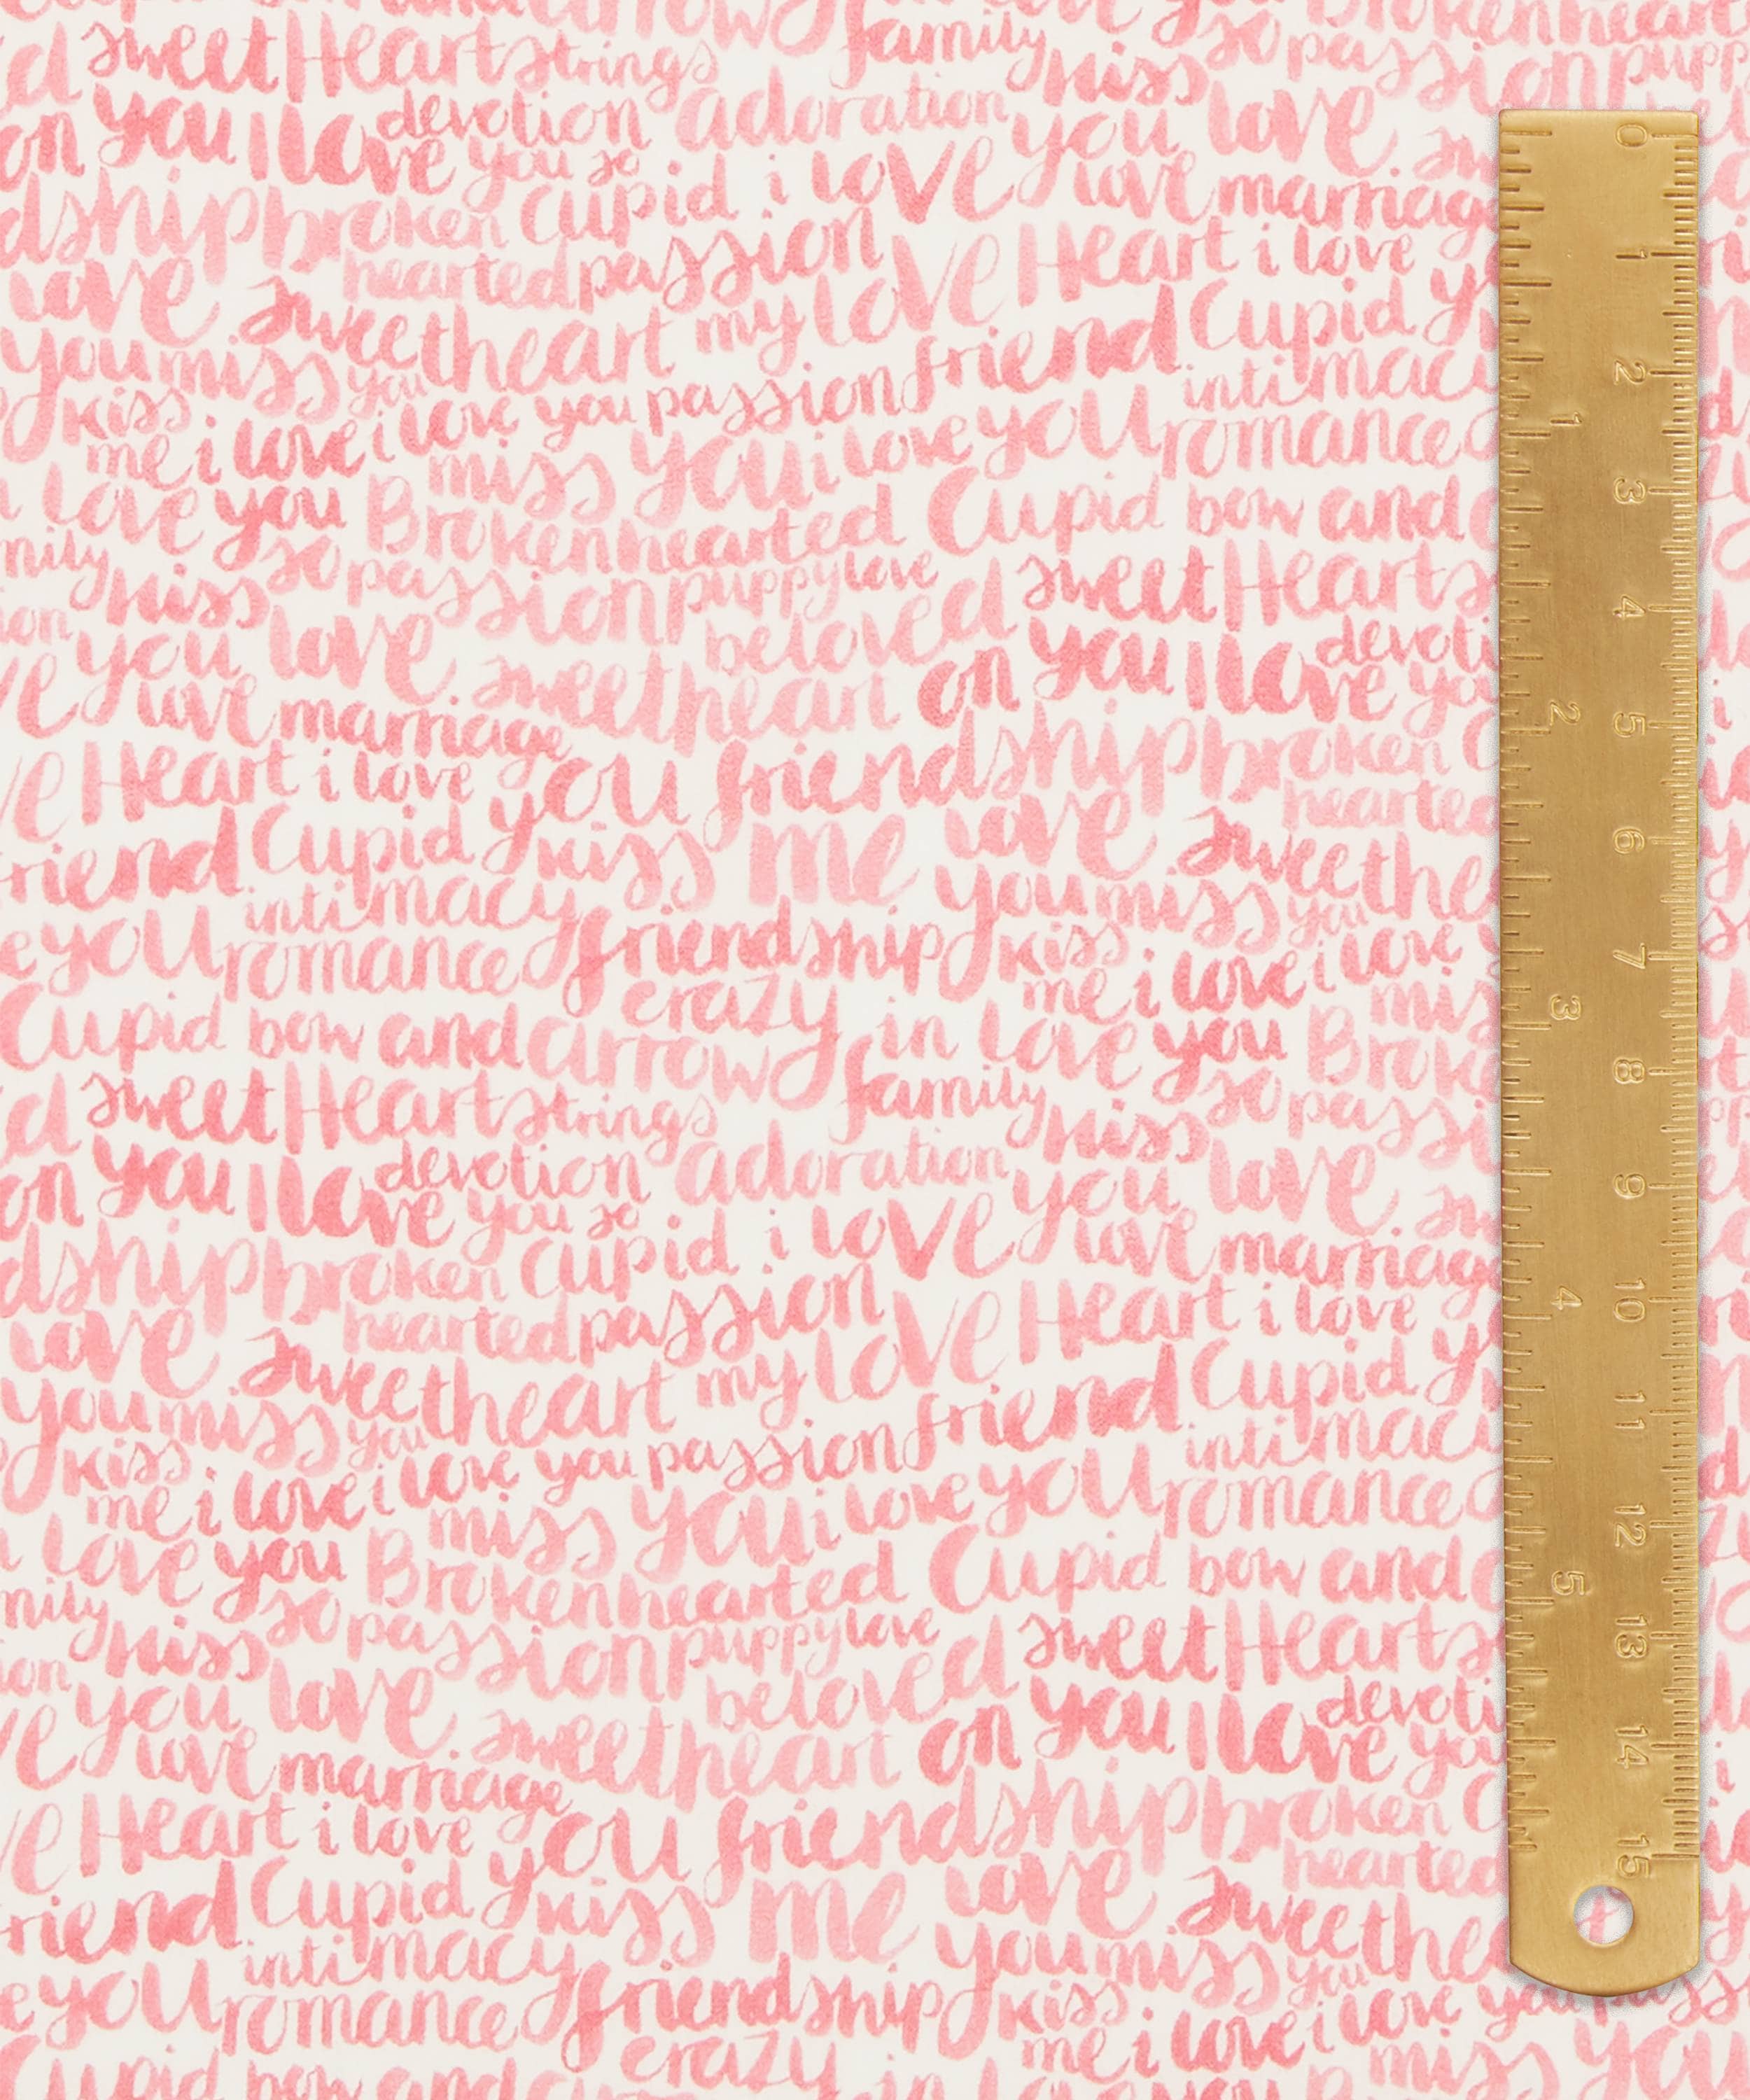 in love you Brokenhearted
d sweet Heartstrings family kiss so passion pupp
on you I love devotion adoration you love. sw
dship broken Cupid you so i love love marriage
love hearted passion love Heart i love
sweetheart my friend Cupid y
you miss you intimacy
kiss i love you passion you romance
me i love miss you i love
love you Brokenhearted Cupid bow and
mily kiss so passion puppy love beloved sweet Hearts
you love. sweetheart on you I love devoti
love marriage you friendship broken C
ve Heart i love hearted
friend Cupid kiss me love sweethe
intimacy friendship you miss you
e you romance crazy kiss me i love i love
Cupid bow and arrow in love you Broke
d sweet Heartstrings family kiss so passi
on you I love devotion adoration you love. sw
dship broken Cupid you so i love love marriage
love hearted passion love Heart i love
sweetheart my friend Cupid y
you miss you intimacy
kiss i love you passion you romance
me i love miss you i love
love you Brokenhearted Cupid bow and
mily kiss so passion puppy love beloved sweet Hearts
you love. sweetheart on you I love devoti
love marriage you friendship broken C
ve Heart i love hearted
friend Cupid kiss me love sweethe
intimacy friendship you miss you
e you romance crazy kiss me i love i love you pass
Cupid bow and in love you miss you
0 1 2 3 4 5 6 7 8 9 10 11 12 13 14 15
1 2 3 4 5